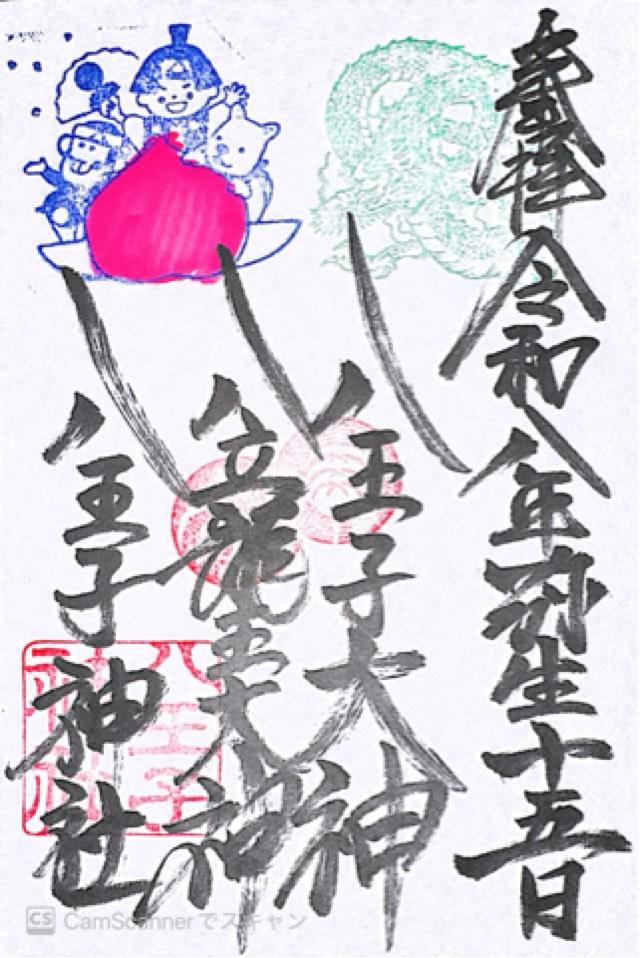 奉拝 令和八年弥生十五日
八王子大神
八龍王大神
八王子神社
八王子
神社
CS CamScannerでスキャン